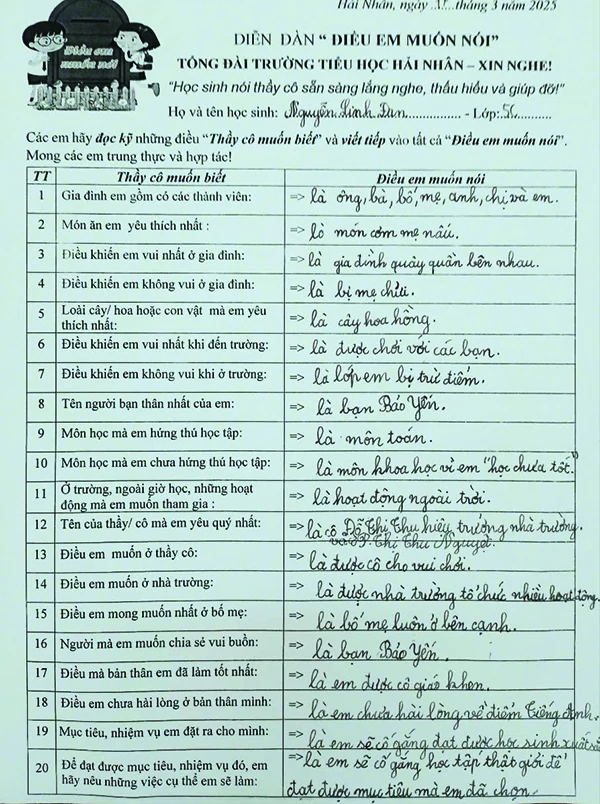 Hải Nhân, ngày 11...tháng 3 năm 2025
Điều em
muốn nói
DIỄN ĐÀN “ ĐIỀU EM MUỐN NÓI”
TỔNG ĐÀI TRƯỜNG TIỂU HỌC HẢI NHÂN – XIN NGHE!
“Học sinh nói thầy cô sẵn sàng lắng nghe, thấu hiểu và giúp đỡ!”
Họ và tên học sinh: Nguyễn Linh Đan................ - Lớp: 5C...........
Các em hãy đọc kỹ những điều “Thầy cô muốn biết” và viết tiếp vào tất cả “Điều em muốn nói”.
Mong các em trung thực và hợp tác!
TT Thầy cô muốn biết Điều em muốn nói
1 Gia đình em gồm có các thành viên: => là ông, bà, bố, mẹ, anh, chị và em.
2 Món ăn em yêu thích nhất : => là món cơm mẹ nấu.
3 Điều khiến em vui nhất ở gia đình: => là gia đình quây quần bên nhau.
4 Điều khiến em không vui ở gia đình: => là bị mẹ chửi.
5 Loài cây/ hoa hoặc con vật mà em yêu
thích nhất: => là cây hoa hồng.
6 Điều khiến em vui nhất khi đến trường: => là được chơi với các bạn.
7 Điều khiến em không vui khi ở trường: => là lớp em bị trừ điểm.
8 Tên người bạn thân nhất của em: => là bạn Bảo Yến.
9 Môn học mà em hứng thú học tập: => là môn toán.
10 Môn học mà em chưa hứng thú học tập: => là môn khoa học vì em "học chưa tốt."
11 Ở trường, ngoài giờ học, những hoạt
động mà em muốn tham gia : => là hoạt động ngoài trời.
12 Tên của thầy/ cô mà em yêu quý nhất: => là cô Đỗ Thị Thu hiệu trưởng nhà trường.
và P. Thị Thu Nguyệt.
13 Điều em muốn ở thầy cô: => là được cô cho vui chơi.
14 Điều em muốn ở nhà trường: => là được nhà trường tổ chức nhiều hoạt động.
15 Điều em mong muốn nhất ở bố mẹ: => là bố mẹ luôn ở bên cạnh.
16 Người mà em muốn chia sẻ vui buồn: => là bạn Bảo Yến.
17 Điều mà bản thân em đã làm tốt nhất: => là em được cô giáo khen.
18 Điều em chưa hài lòng ở bản thân mình: => là em chưa hài lòng về điểm Tiếng Anh.
19 Mục tiêu, nhiệm vụ em đặt ra cho mình: => là em sẽ cố gắng đạt được học sinh xuất sắc
20 Để đạt được mục tiêu, nhiệm vụ đó, em
hãy nêu những việc cụ thể em sẽ làm: => là em sẽ cố gắng học tập thật giỏi để
đạt được mục tiêu mà em đã chọn.